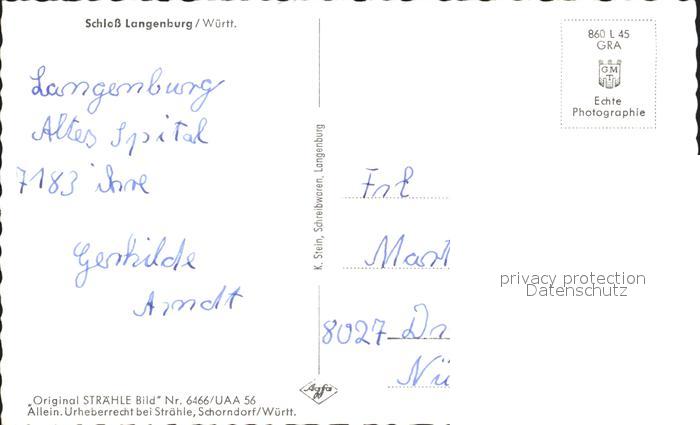 Schloß Langenburg / Württ.
Langenburg
Altes Spital
7183 ihre
Gerhilde
Arndt
„Original STRÄHLE Bild" Nr. 6466/UAA 56
Allein. Urheberrecht bei Strähle, Schorndorf/Württ.
K. Stein, Schreibwaren, Langenburg
Agfa
860 L 45
GRA
GM
T
Echte
Photographie
Frl
Mart
8027 Dr
Nü
privacy protection
Datenschutz